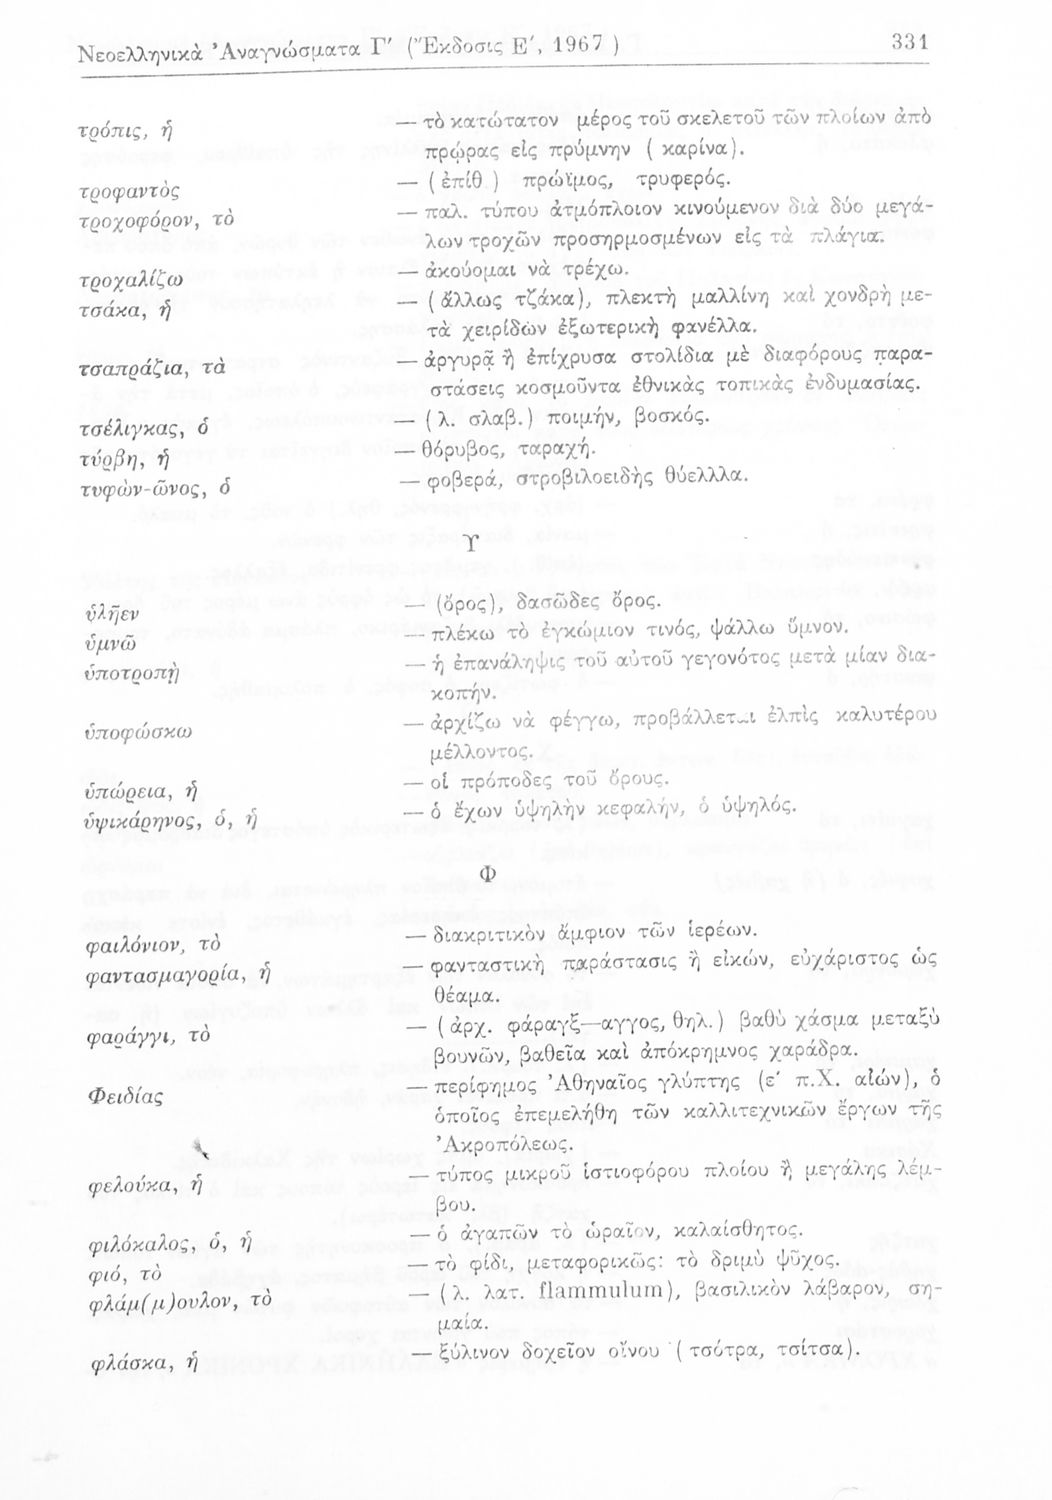 Νεοελληνικὰ Ἀναγνώσματα Γ' (Ἔκδοσις Ε', 1967 ) 331
τρόπις, ἡ — τὸ κατώτατον μέρος τοῦ σκελετοῦ τῶν πλοίων ἀπὸ
πρῴρας εἰς πρύμνην ( καρίνα).
τροφαντὸς — ( ἐπίθ.) πρώϊμος, τρυφερός.
τροχοφόρον, τὸ — παλ. τύπου ἀτμόπλοιον κινούμενον διὰ δύο μεγά-
λων τροχῶν προσηρμοσμένων εἰς τὰ πλάγια.
τροχαλίζω — ἀκούομαι νὰ τρέχω.
τσάκα, ἡ — ( ἄλλως τζάκα), πλεκτὴ μαλλίνη καὶ χονδρὴ με-
τὰ χειρίδων ἐξωτερικὴ φανέλλα.
τσαπράζια, τὰ — ἀργυρᾶ ἢ ἐπίχρυσα στολίδια μὲ διαφόρους παρα-
στάσεις κοσμοῦντα ἐθνικὰς τοπικὰς ἐνδυμασίας.
τσέλιγκας, ὁ — ( λ. σλαβ.) ποιμήν, βοσκός.
τύρβη, ἡ — θόρυβος, ταραχή.
τυφὼν-ῶνος, ὁ — φοβερά, στροβιλοειδὴς θύελλλα.
Υ
ὑλῆεν — (ὄρος), δασῶδες ὄρος.
ὑμνῶ — πλέκω τὸ ἐγκώμιον τινός, ψάλλω ὕμνον.
ὑποτροπὴ — ἡ ἐπανάληψις τοῦ αὐτοῦ γεγονότος μετὰ μίαν δια-
κοπήν.
ὑποφώσκω — ἀρχίζω νὰ φέγγω, προβάλλεται ἐλπὶς καλυτέρου
μέλλοντος.
ὑπώρεια, ἡ — οἱ πρόποδες τοῦ ὄρους.
ὑψικάρηνος, ὁ, ἡ — ὁ ἔχων ὑψηλὴν κεφαλήν, ὁ ὑψηλός.
Φ
φαιλόνιον, τὸ — διακριτικὸν ἄμφιον τῶν ἱερέων.
φαντασμαγορία, ἡ — φανταστικὴ παράστασις ἢ εἰκών, εὐχάριστος ὡς
θέαμα.
φαράγγι, τὸ — ( ἀρχ. φάραγξ—αγγος, θηλ.) βαθὺ χάσμα μεταξὺ
βουνῶν, βαθεῖα καὶ ἀπόκρημνος χαράδρα.
Φειδίας — περίφημος Ἀθηναῖος γλύπτης (ε' π.Χ. αἰών), ὁ
ὁποῖος ἐπεμελήθη τῶν καλλιτεχνικῶν ἔργων τῆς
Ἀκροπόλεως.
φελούκα, ἡ — τύπος μικροῦ ἱστιοφόρου πλοίου ἢ μεγάλης λέμ-
βου.
φιλόκαλος, ὁ, ἡ — ὁ ἀγαπῶν τὸ ὡραῖον, καλαίσθητος.
φιό, τὸ — τὸ φίδι, μεταφορικῶς: τὸ δριμὺ ψῦχος.
φλάμ(μ)ουλον, τὸ — ( λ. λατ. flammulum), βασιλικὸν λάβαρον, ση-
μαία.
φλάσκα, ἡ — ξύλινον δοχεῖον οἴνου ( τσότρα, τσίτσα).